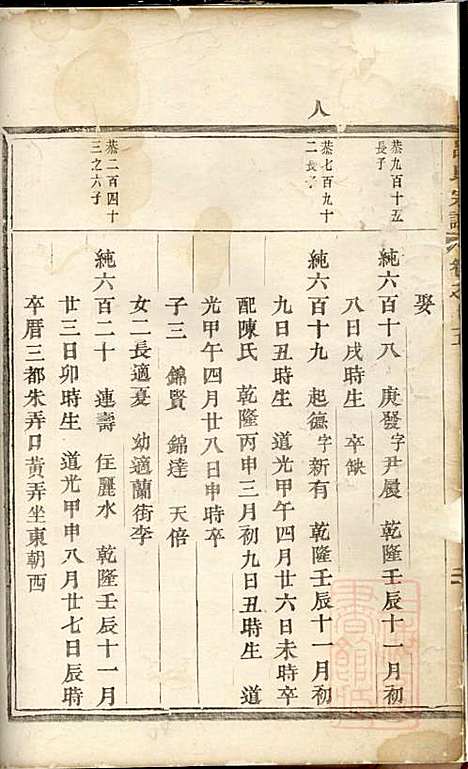 八
娶
恭九百十五
長子
純六百十八 庚發字尹履 乾隆壬辰十一月初
八日戌時生 卒缺
恭七百九十
二長子
純六百十九 起德字新有 乾隆壬辰十一月初
九日丑時生 道光甲午四月廿六日未時卒
配陳氏 乾隆丙申三月初九日丑時生 道
光甲午四月廿八日申時卒
子三 錦賢 錦達 天倍
女二長適憂 幼適蘭街李
恭二百四十
三之六子
純六百二十 連壽 住麗水 乾隆壬辰十一月
廿三日卯時生 道光甲申八月廿七日辰時
卒厝三都朱弄口黃弄坐東朝西